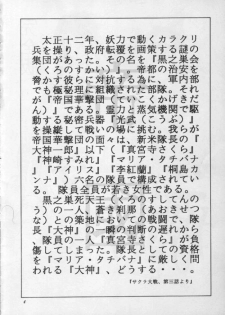 太正十二年、妖力で動くカラクリ
兵を操り、政府転覆を画策する謎の
集団があった。その名を『黒之巣会
（くろのすかい）』。帝都の治安を
脅かす彼らに対抗する為に、軍内部
でも極秘裡に組織された部隊。それ
が『帝国華撃団（ていこくかげきだ
ん）』である。霊力と蒸気機関で駆
動する秘密兵器『光武（こうぶ）』
を操縦して戦いの場に挑む。我らが
帝国華撃団の面々は、新米隊長の『
大神一郎』以下『真宮寺さくら』『
神崎すみれ』『マリア・タチバナ』
『アイリス』『李紅蘭』『桐島カン
ナ』六名の隊員で構成されてい
る。　隊員全員が若き女性である。
　黒之巣死天王（くろのすしてんの
う）の一人、蒼き刹那（あおきせつ
な）との築地においての戦闘で、隊
長『大神』の一瞬の判断の遅れから
、隊員の一人『真宮寺さくら』が負
傷してしまった。隊長としての資格
を『マリア・タチバナ』に厳しく問
われる『大神』、どうする・・・。
『サクラ大戦、第三話より』
4